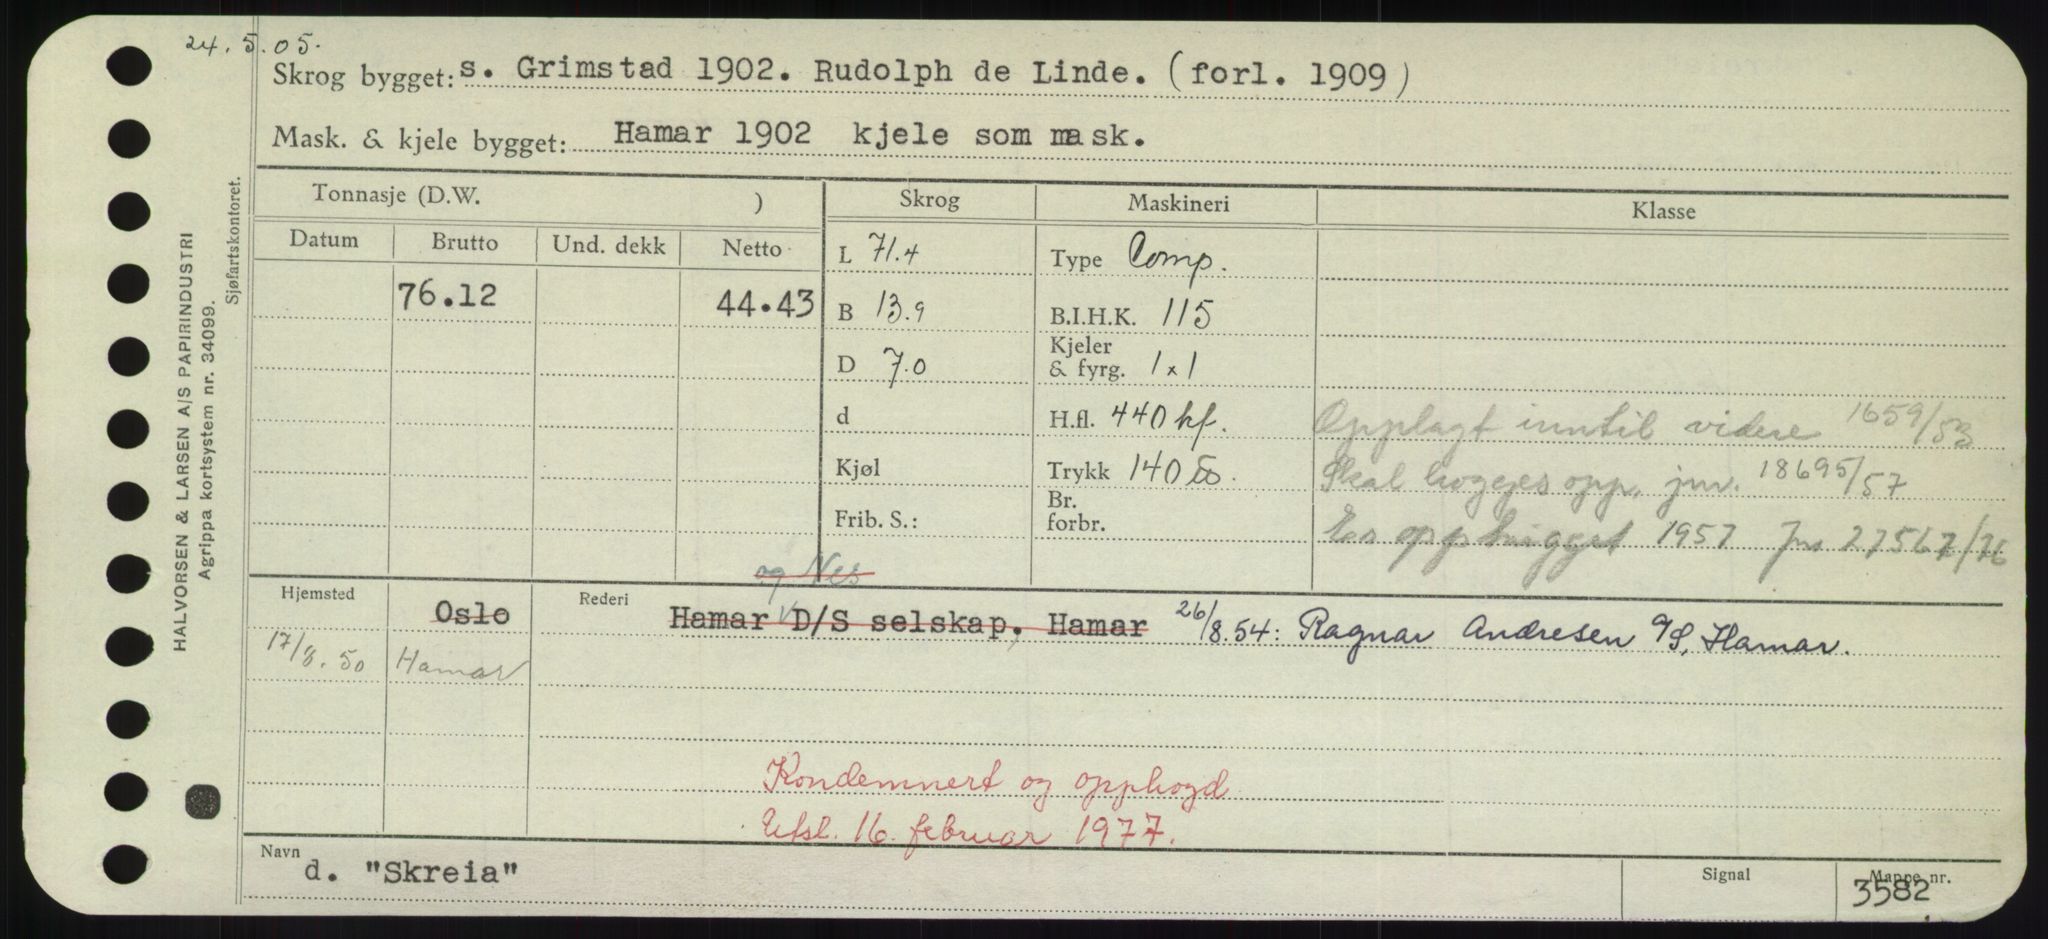 24.5.05.
Skrog bygget: s. Grimstad 1902. Rudolph de Linde. (forl. 1909)
Mask. & kjele bygget: Hamar 1902 kjele som mask.
Tonnasje (D.W. ) Skrog Maskineri Klasse
Datum Brutto Und. dekk Netto
L 71.4 Type Comp.
76.12 44.43 B 13.9 B.I.H.K. 115
D 7.0 Kjeler & fyrg. 1x1
d H.fl. 440 kf. Opplagt inntil videre 1659/53
Kjøl Trykk 140 lbs. Skal hogges opp. jnr. 18695/57
Frib. S.: Br. forbr. Er opphugget 1957 Jnr 27567/76
og Nes
Hjemsted Oslo Rederi Hamar D/S selskap, Hamar 26/8.54: Ragnar Andresen A/S, Hamar.
17/8.50 Hamar
Kondemnert og opphogd
Utsl. 16. februar 1977.
Navn d. "Skreia" Signal Mappe nr. 3582
HALVORSEN & LARSEN A/S PAPIRINDUSTRI
Agrippa kortsystem nr. 34099.
Sjøfartskontoret.